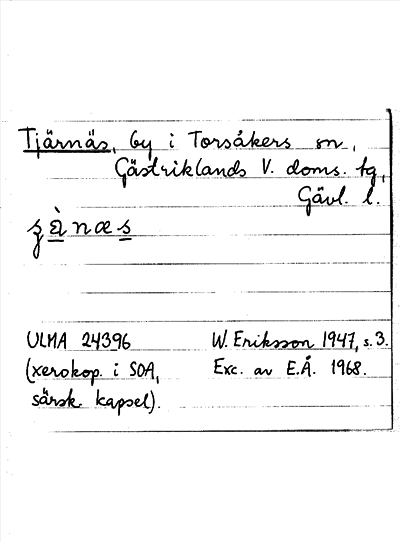 Tjärnäs, by i Torsåkers sn,
Gästriklands V. doms. tg,
Gävl. l.
ʒä̀næs
ULMA 24396 W. Eriksson 1947, s. 3.
(xerokop. i SOA, Exc. av E.Å. 1968.
särsk. kapsel).